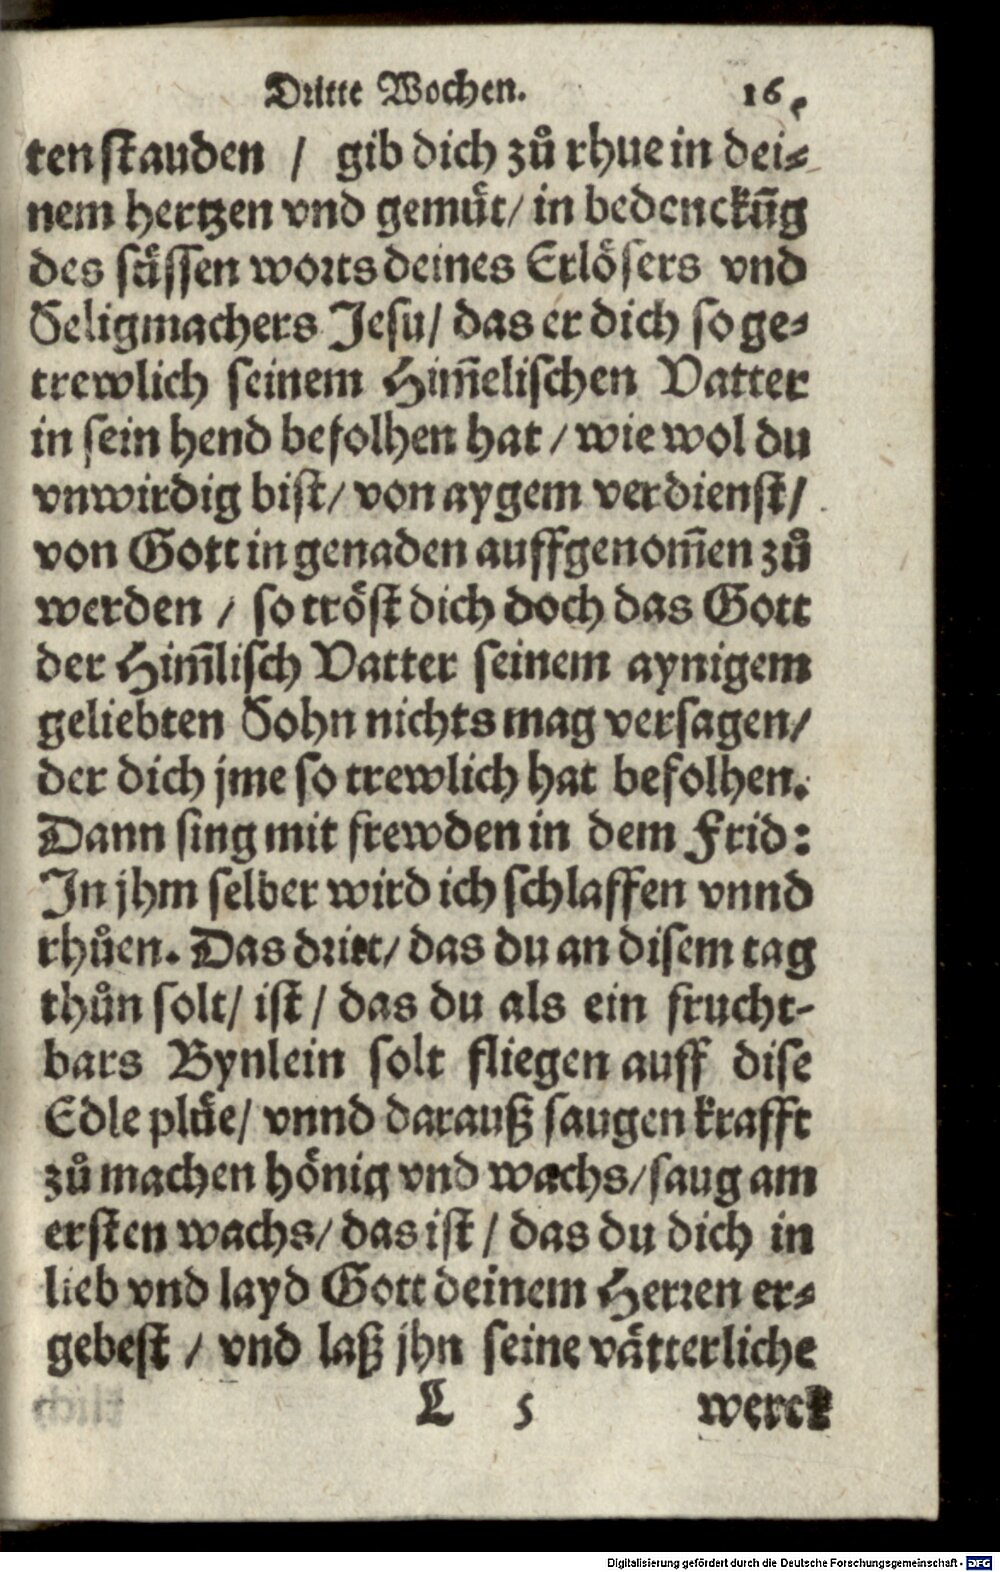 Dritte Wochen. 16
ten stauden / gib dich zů rhue in dei⸗
nem hertzen vnd gemuͤt / in bedenckūg
des suͤssen worts deines Erloͤsers vnd
Seligmachers Jesu / das er dich so ge⸗
trewlich seinem Him̄elischen Vatter
in sein hend befolhen hat / wie wol du
vnwirdig bist / von aygem verdienst /
von Gott in genaden auffgenom̄en zů
werden / so troͤst dich doch das Gott
der Him̄lisch Vatter seinem aynigem
geliebten Sohn nichts mag versagen /
der dich jme so trewlich hat befolhen.
Dann sing mit frewden in dem Frid:
In jhm selber wird ich schlaffen vnnd
rhůen. Das dritt / das du an disem tag
thůn solt / ist / das du als ein frucht-
bars Bynlein solt fliegen auff dise
Edle pluͤe / vnnd darauß saugen krafft
zů machen hoͤnig vnd wachs / saug am
ersten wachs / das ist / das du dich in
lieb vnd layd Gott deinem Herren er⸗
gebest / vnd laß jhn seine vaͤtterliche
L 5 werck
Digitalisierung gefördert durch die Deutsche Forschungsgemeinschaft - DFG